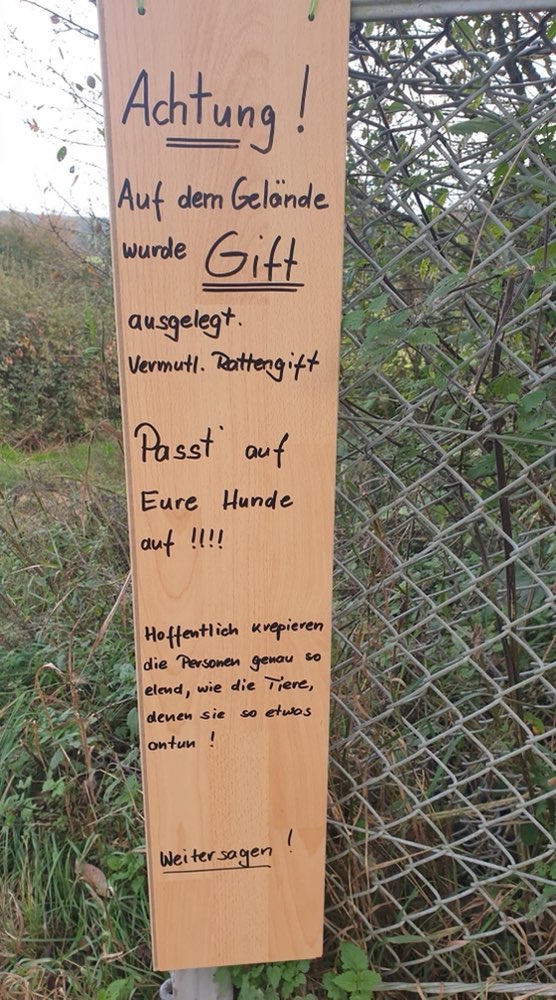 Achtung !
Auf dem Gelände
wurde Gift
ausgelegt.
Vermutl. Rattengift
Passt' auf
Eure Hunde
auf !!!!
Hoffentlich krepieren
die Personen genau so
elend, wie die Tiere,
denen sie so etwas
antun !
Weitersagen !